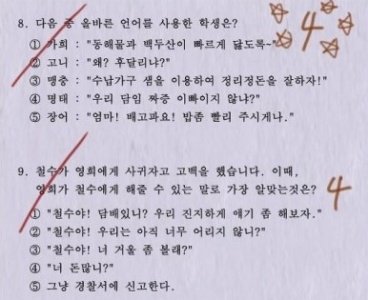 8. 다음 중 올바른 언어를 사용한 학생은?
① 가희 : "동해물과 백두산이 빠르게 닳도록~"
② 고니 : "왜? 후달리냐?"
③ 맹충 : "수납가구 샘을 이용하여 정리정돈을 잘하자!"
④ 명태 : "우리 담임 짜증 이빠이지 않냐?"
⑤ 장어 : "엄마! 배고파요! 밥좀 빨리 주시게나."
4
9. 철수가 영희에게 사귀자고 고백을 했습니다. 이때,
영희가 철수에게 해줄 수 있는 말로 가장 알맞는것은?
① "철수야! 담배있니? 우리 진지하게 얘기 좀 해보자."
② "철수야! 우리는 아직 너무 어리지 않니?"
③ "철수야! 너 거울 좀 볼래?"
④ "너 돈많니?"
⑤ 그냥 경찰서에 신고한다.
4